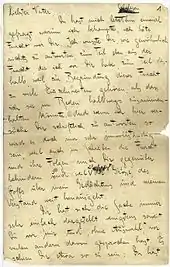 Liebster Vater
Du hast mich letzthin einmal
gefragt, warum ich behaupte, ich hätte
Furcht vor Dir. Ich wusste Dir, wie gewöhnlich,
nichts zu antworten, zum Teil eben aus der
Furcht, die ich vor Dir habe, zum Teil des-
halb, weil zur Begründung dieser Furcht
zu viele Einzelheiten gehören, als dass
ich sie im Reden halbwegs zusammen-
halten könnte. Und wenn ich hier ver-
suche Dir schriftlich zu antworten, so
wird es doch nur sehr unvollständig
sein, weil auch im Schreiben die Furcht
und ihre Folgen mich Dir gegenüber
behindern und weil die Grösse des
Stoffs über mein Gedächtnis und meinen
Verstand weit hinausgeht.
Dir hat sich die Sache immer
sehr einfach dargestellt, wenigstens soweit
Du vor mir und, ohne Auswahl, vor
vielen andern davon gesprochen hast. Es
schien Dir etwa so zu sein: Du hast